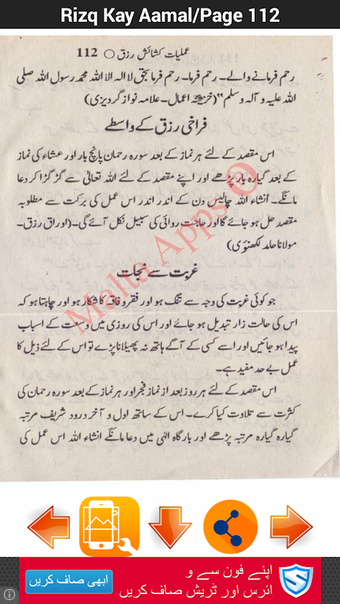 Rizq Kay Aamal/Page 112
عملیات کشائش رزق ○ 112
رحم فرمانے والے۔ رحم فرما۔ رحم فرما بحق لا الہ الا اللہ محمد رسول اللہ صلی
اللہ علیہ و آلہ وسلم" (خزینۃ اعمال۔ علامہ نواز گردیزی)
فراخی رزق کے واسطے
اس مقصد کے لئے ہر نماز کے بعد سورہ رحمان پانچ بار اور عشاء کی نماز
کے بعد گیارہ بار پڑھے اور اپنے مقصد کے لئے اللہ تعالیٰ سے گڑگڑا کر دعا
مانگے۔ انشاء اللہ چالیس دن کے اندر اندر اس عمل کی برکت سے مطلوبہ
مقصد حل ہو جائے گا اور حاجت روائی کی سبیل نکل آئے گی۔ (اوراق رزق۔
مولانا حامد لکھنوی)
غربت سے نجات
جو کوئی غربت کی وجہ سے تنگ ہو اور فقر و فاقہ کا شکار ہو اور چاہتا ہو کہ
اس کی حالت زار تبدیل ہو جائے اور اس کی روزی میں وسعت کے اسباب
پیدا ہو جائیں اور اسے کسی کے آگے ہاتھ نہ پھیلانا پڑے تو اس کے لئے ذیل کا
عمل بے حد مفید ہے۔
اس مقصد کے لئے ہر روز بعد از نماز فجر اور ہر نماز کے بعد سورہ رحمان کی
کثرت سے تلاوت کیا کرے۔ اس کے ساتھ اول و آخر درود شریف مرتبہ
گیارہ گیارہ مرتبہ پڑھے اور بارگاہ الٰہی میں دعا مانگے انشاء اللہ اس عمل کی
Malta Apps
اپنے فون سے و
ائرس اور ٹریش صاف کریں
ابھی صاف کریں